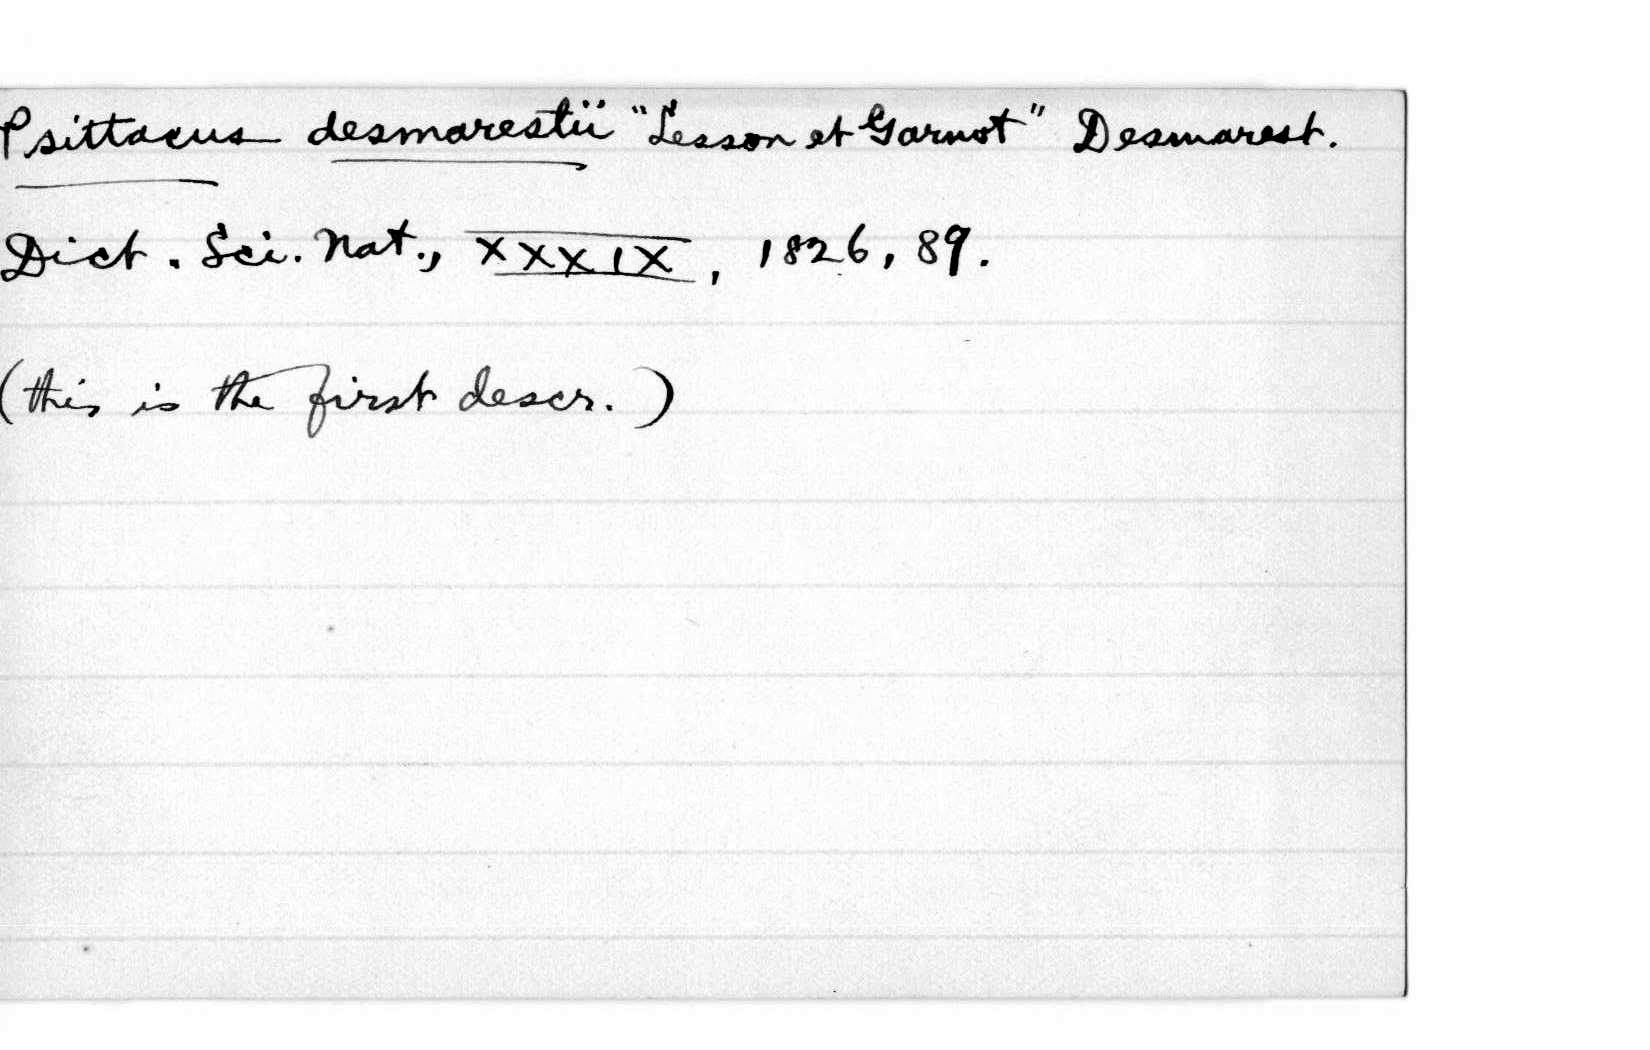 Psittacus desmarestii "Lesson et Garnot" Desmarest.
Dict. Sci. Nat., XXXIX, 1826, 89.
(this is the first descr.)